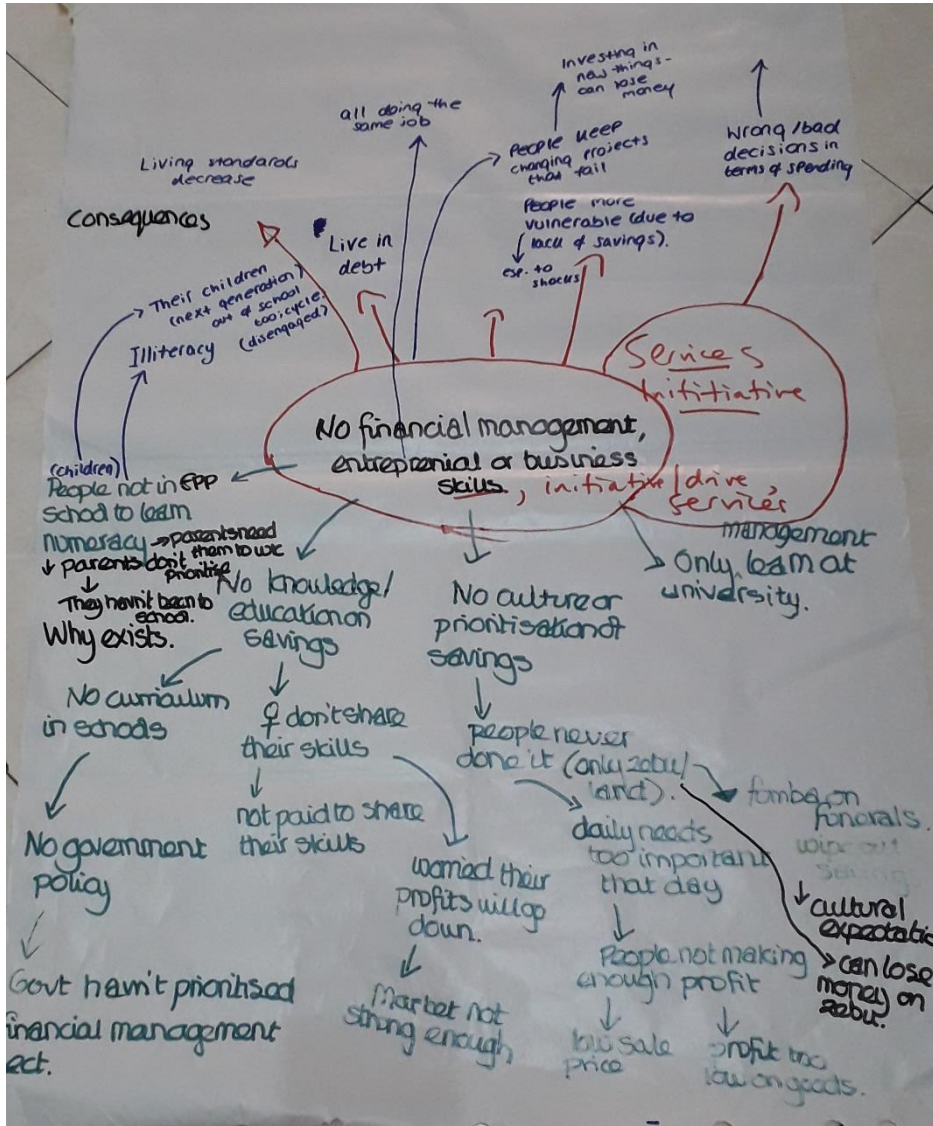 Investing in
new things-
can lose
money
all doing the
same job
People keep
changing projects
that fail
Wrong/bad
decisions in
terms of spending
Living standards
decrease
People more
vulnerable (due to
lack of savings).
esp. to
shocks
Consequences
Live in
debt
Their children
(next generation)
out of school
too: cycle.
(disengaged)
Illiteracy
Services
Inititiative
No financial management,
entreprenial or business
skills, initiative/drive,
services
(children)
People not in EPP
school to learn
numeracy → parents need
them to work
parents don't
prioritise
They havn't been to
school.
Why exists.
No knowledge/
education on
savings
No culture or
prioritisation of
savings
management
Only learn at
university.
No curriculum
in schools
♀ don't share
their skills
people never
done it (only zebu/
land).
fomba on
funerals.
wipe out
saving
not paid to share
their skills
daily needs
too important
that day
No government
policy
worried their
profits will go
down.
cultural
expectatio
People not making
enough profit
can lose
money on
zebu.
Govt havn't prioritised
financial management
ect.
Market not
strong enough
low sale
price
profit too
low on goods.